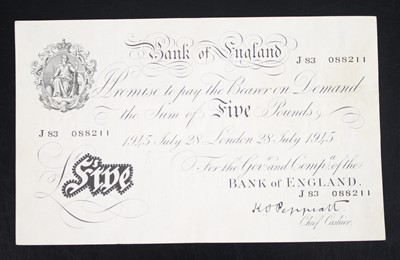 Bank of England
J 83 088211
I Promise to pay the Bearer on Demand
the Sum of Five Pounds
J 83 088211
1945 July 28 London 28 July 1945
For the Govr. and Compa. of the
BANK of ENGLAND.
J 83 088211
£Five
K O Peppiatt
Chief Cashier.